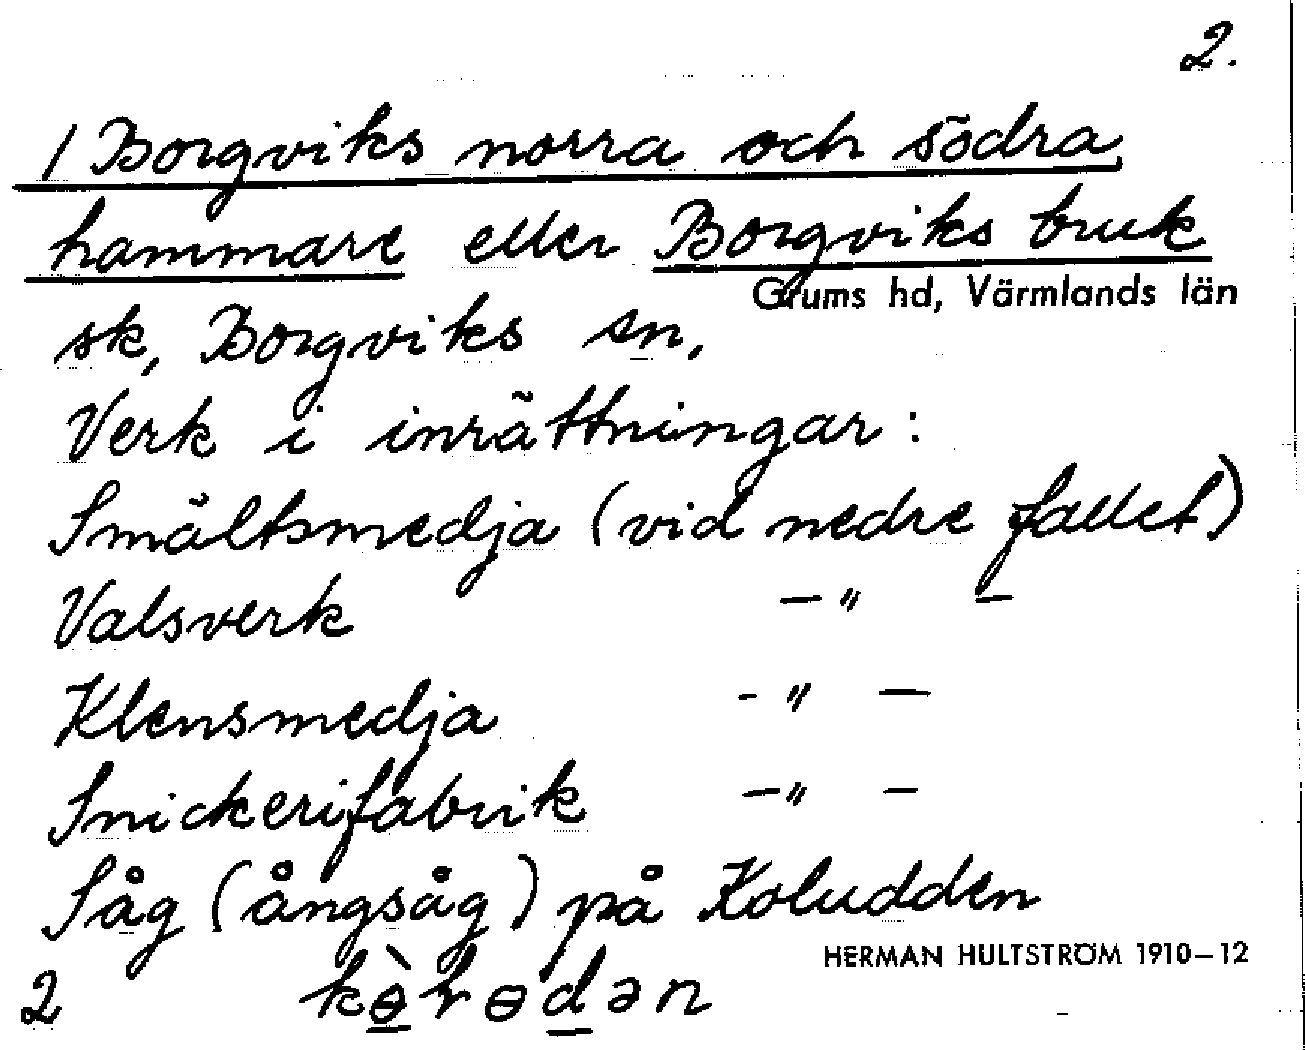 2.
/ Borgviks norra och södra
hammare eller Borgviks bruk
Grums hd, Värmlands län
sk, Borgviks sn,
Verk i inrättningar:
Smältsmedja (vid nedre fallet)
Valsverk –"–
Klensmedja -"–
Snickerifabrik –"–
Såg (ångsåg) på Koludden
HERMAN HULTSTRÖM 1910–12
2